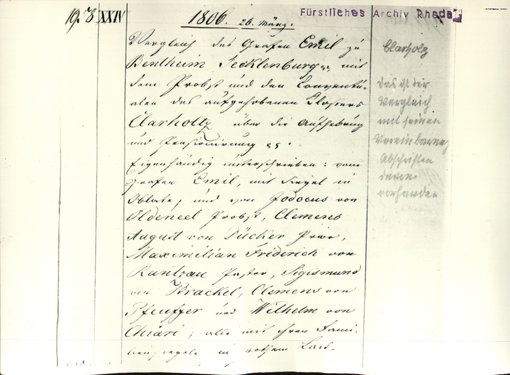 19. 3 XXIV
1806. 26. März.
Fürstliches Archiv Rheda
Vergleich des Grafen Emil zu
Bentheim Tecklenburg mit
dem Probst und den Conventu-
alen des aufgehobenen Klosters
Clarholtz über die Aufhebung
und Pensionirung
Eigenhändig unterschrieben: vom
Grafen Emil, mit Siegel in
Oblate, und von Jodocus von
Oldeneel Probst, Clemens
August von Fücher Prior,
Maximilian Friderich von
Rantzau Pastor, Sigismund
von Brackel, Clemens von
Pfeuffer und Wilhelm von
Chiari; alle mit ihren Fami-
liensiegeln in rothem Lack.
Clarholz
Das ist der
Vergleich
mit seinen
Vereinbarung
Abschriften
vorhanden